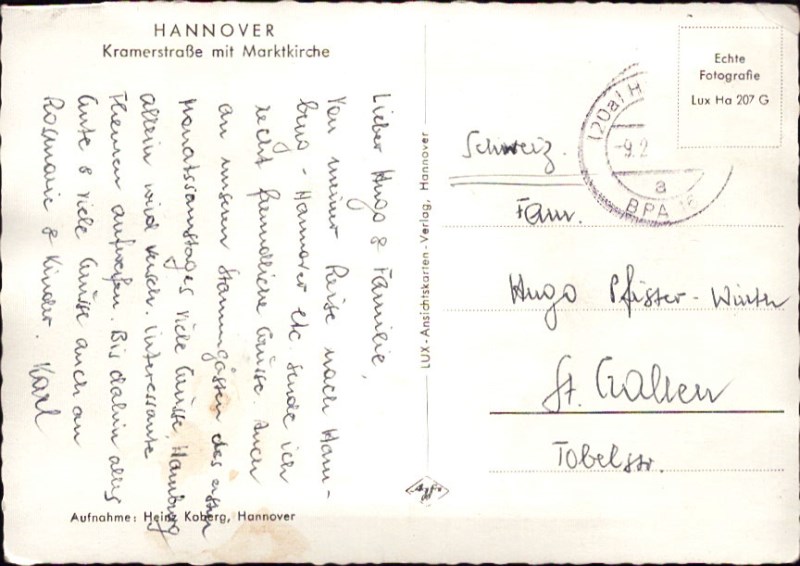 HANNOVER
Kramerstraße mit Marktkirche
Lieber Hugo & Familie,
Von meiner Reise nach Ham-
burg - Hannover etc. sende ich
recht freundliche Grüsse. Auch
an unseren Stammgästen des ersten
Monatssamstages viele Grüsse, Hamburg
allein wird versch. interessante
Themen aufwerfen. Bis dahin alles
Gute & viele Grüsse auch an
Rosmarie & Kinder. Karl
Aufnahme: Heinz Koberg, Hannover
LUX-Ansichtskarten-Verlag, Hannover
Agfa
Echte
Fotografie
Lux Ha 207 G
(20a) H
-9.2
a
BPA
Schweiz.
Fam.
Hugo Pfister-Winter
St. Gallen
Tobelstr.